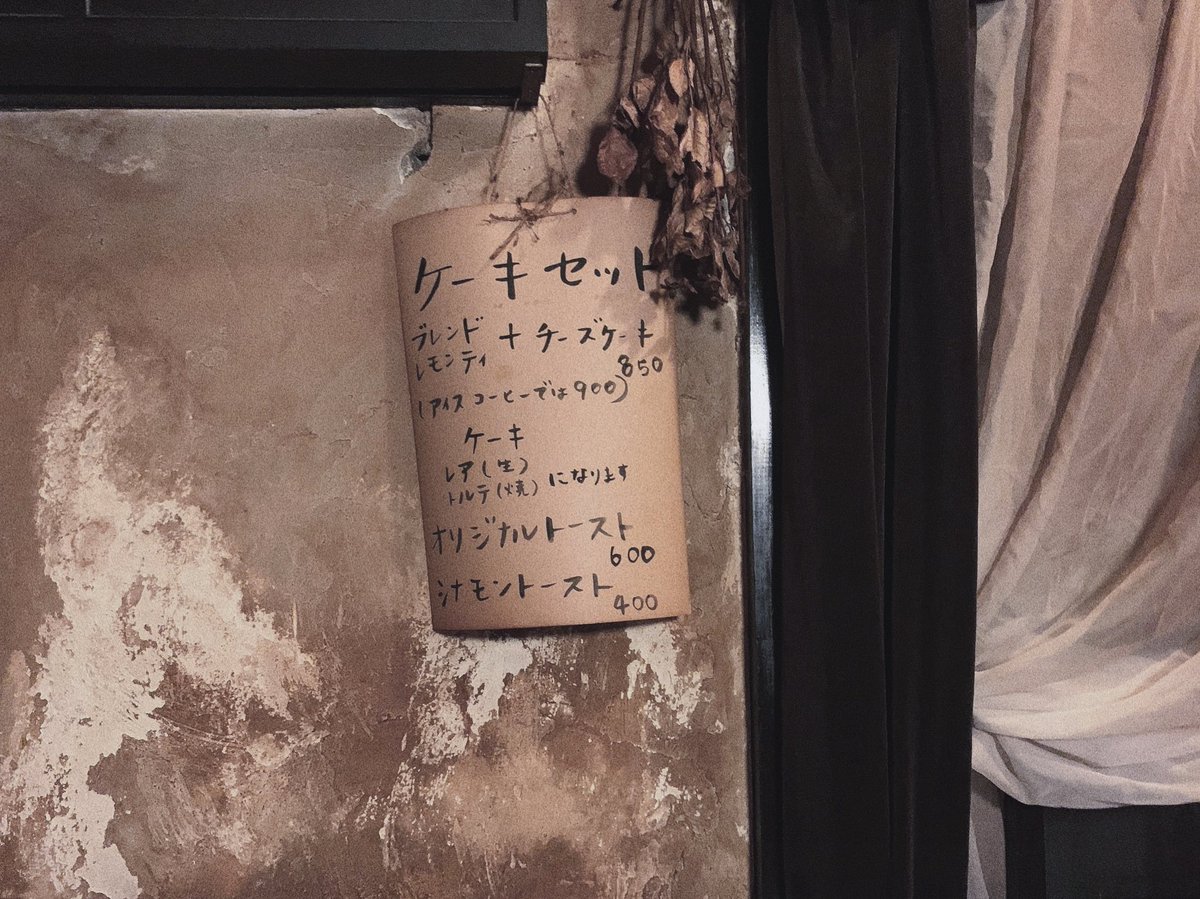 ケーキセット
ブレンド + チーズケーキ
レモンティ 850
(アイスコーヒーでは900)
ケーキ
レア(生)
トルテ(焼) になります
オリジナルトースト
600
シナモントースト
400